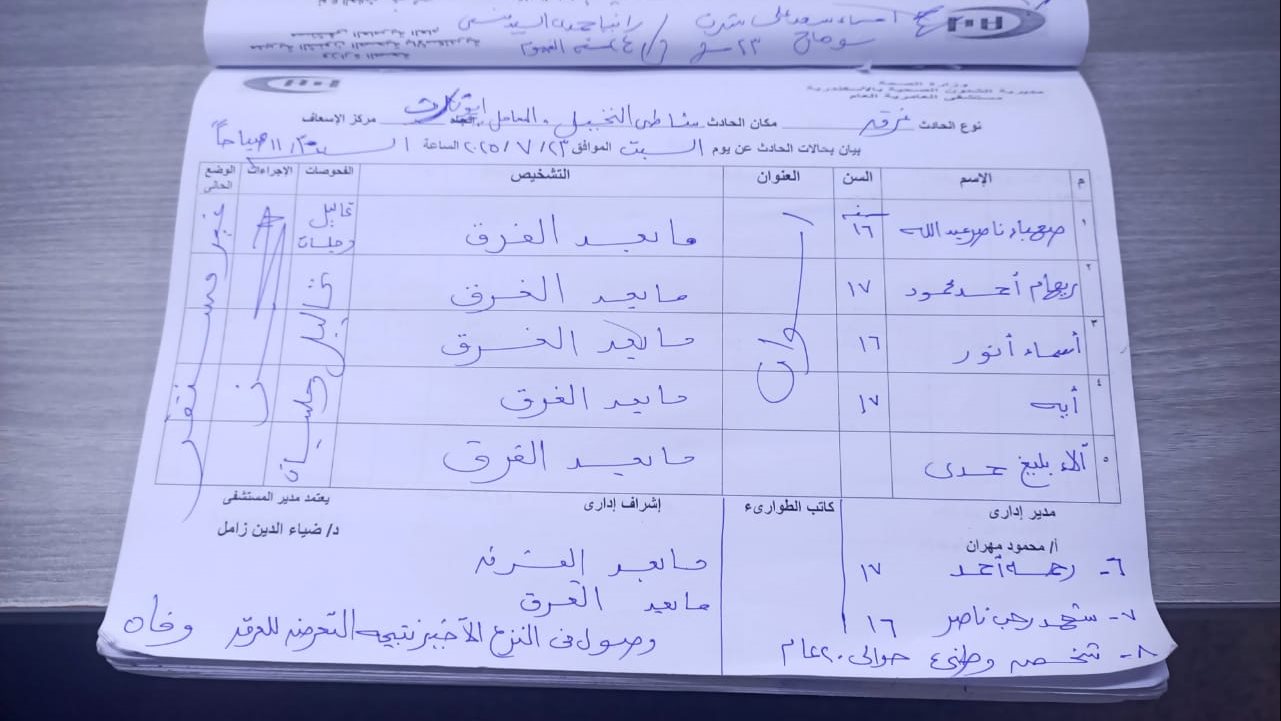 أسماء سعد على
سوهاج ٢٣ س
وزارة الصحة
مديرية الشئون الصحية بالاسكندرية
مستشفى العامرية العام
نوع الحادث غرق مكان الحادث شاطئ النخيل الجهة ابو تلات مركز الإسعاف
بيان بحالات الحادث عن يوم السبت الموافق ٢٣/ ٧ / ٢٠٢٥ الساعة ١١ صباحاً
م الإسم السن العنوان التشخيص الفحوصات الإجراءات الوضع الحالى
١ ناصر عبد الله ١٦ سنة ما بعد الغرق تحاليل وجلسات
٢ ريهام أحمد محمود ١٧ ما بعد الغرق
٣ أسماء أنور ١٦ ما بعد الغرق
٤ أيه ١٧ ما بعد الغرق
٥ آلاء بليغ حمدى ما بعد الغرق
أسوان
تحاليل وجلسات
غير مستقر
مدير إدارى كاتب الطوارىء إشراف إدارى يعتمد مدير المستشفى
أ/ محمود مهران د/ ضياء الدين زامل
٦- رحمه أحمد ١٧ ما بعد الغرق
٧- شهد رجب ناصر ١٦ ما بعد الغرق
٨- شخص وطنى حوالى ٢٠ عام وصول فى النزع الأخير نتيجه التعرض للغرق وفاه